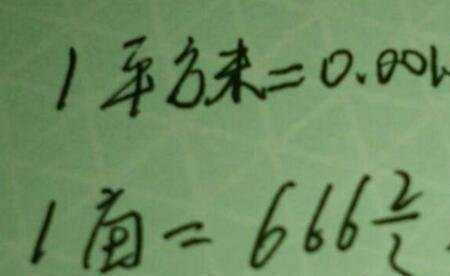 1平方米=0.001
1亩=666 2/